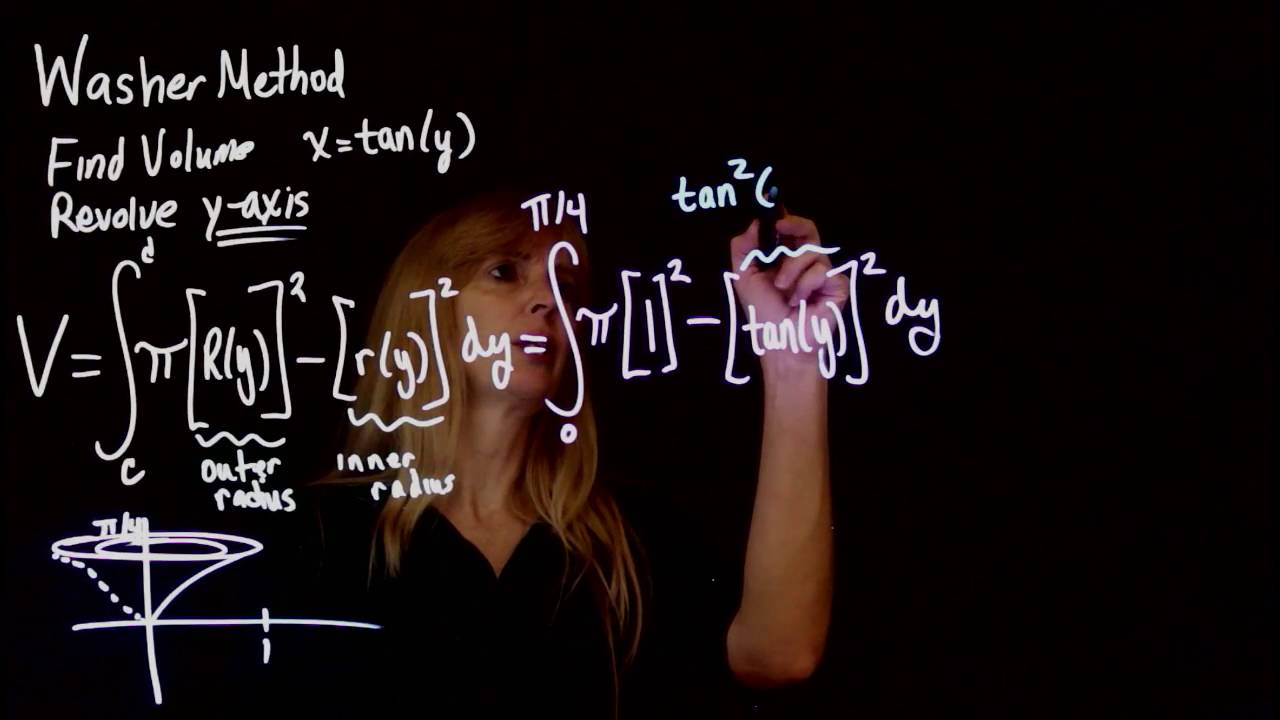 Washer Method
Find Volume x=tan(y)
Revolve y-axis
V = ∫_c^d π[R(y)]² - [r(y)]² dy = ∫_0^{π/4} π[1]² - [tan(y)]² dy
tan²(
outer radius
inner radius
π/4
1